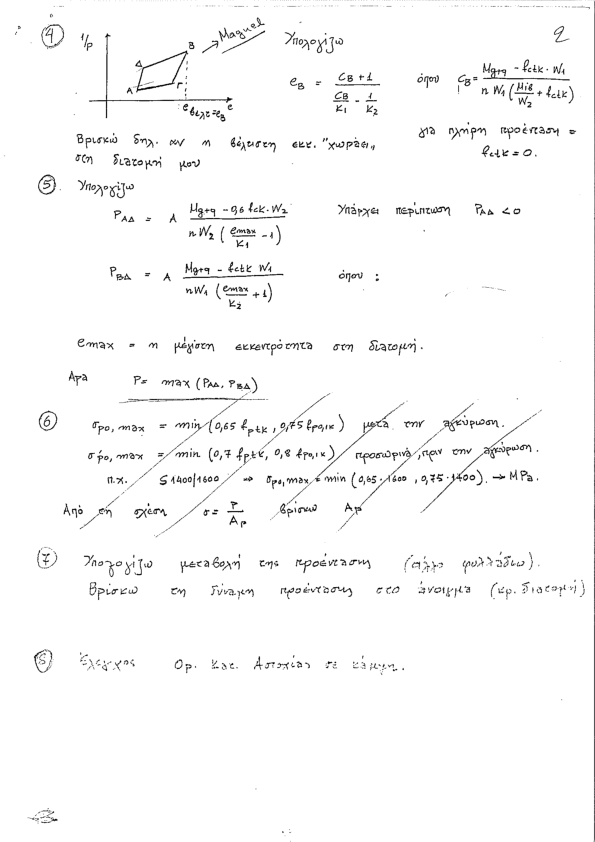 2
④ 1/P Β Δ Α Γ e e βέλτ=eB → Magnel
Υπολογίζω
eB = (CB + 1) / (CB/K1 - 1/K2) όπου CB = (Mg+q - fctk · W1) / (n W1 (Mib/W2 + fctk))
για πλήρη προένταση =
fctk = 0.
Βρισκω δηλ. αν η βέλτιστη εκκ. "χωράει"
στη διατομή μου
⑤ Υπολογίζω
PΑΔ = A (Mg+q - 0,6 fck · W2) / (n W2 (emax/K1 - 1)) Υπάρχει περίπτωση PΑΔ < 0
PΒΔ = A (Mg+q - fctk W1) / (n W1 (emax/K2 + 1)) όπου :
emax = η μέγιστη εκκεντρότητα στη διατομή.
Αρα P = max (PΑΔ, PΒΔ)
⑥ σpo,max = min (0,65 fptk, 0,75 fpo,1k) μετά την αγκύρωση.
σpo,max = min (0,7 fptk, 0,8 fpo,1k) προσωρινά, πριν την αγκύρωση.
π.χ. S1400/1600 ⇒ σpo,max = min (0,65·1600, 0,75·1400). → MPa.
Από τη σχέση σ = P/Ap βρίσκω Ap
⑦ Υπολογίζω μεταβολή της προέντασης (άλλο φυλλάδιο).
Βρίσκω τη δύναμη προέντασης στο άνοιγμα (κρ. διατομή)
⑧ Έλεγχος Ορ. Κατ. Αστοχίας σε κάμψη.